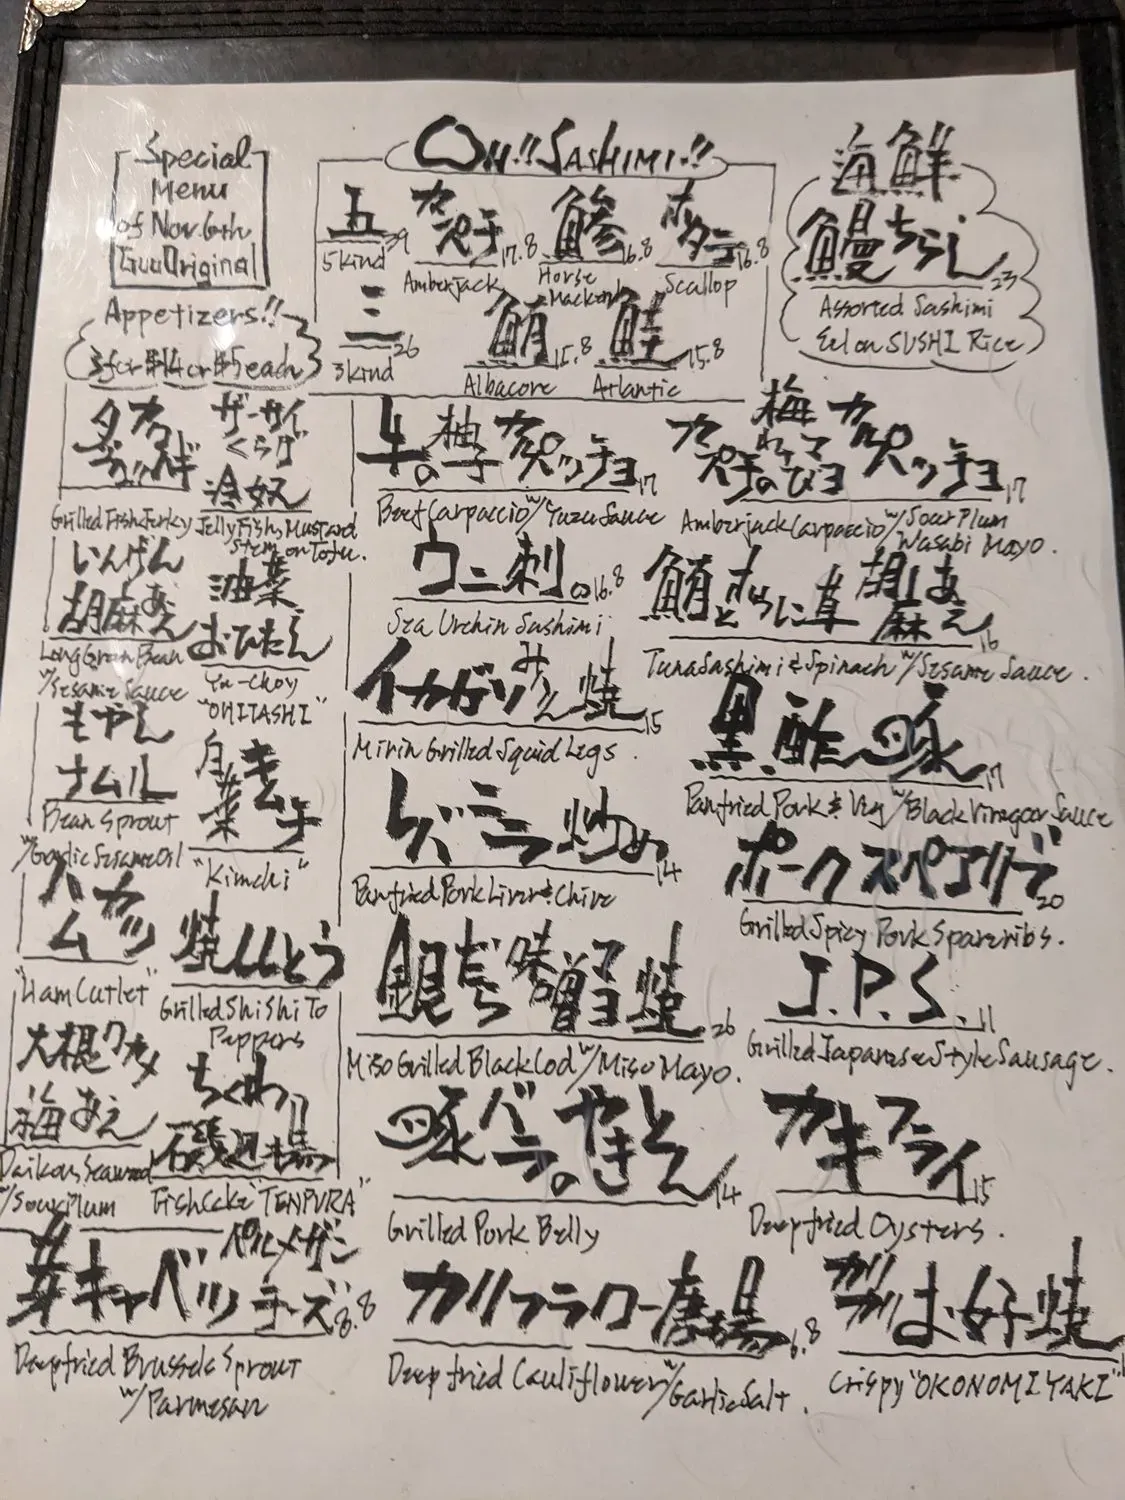 Special
Menu
of Nov. 6th
Guu Original
Appetizers!!
3 for $14 or $5 each
OH!! SASHIMI!!
五 39
5 kind
カンパチ 17.8
Amberjack
鯵 16.8
Horse
Mackerel
ホタテ 16.8
Scallop
三 26
3 kind
鮪 15.8
Albacore
鮭 15.8
Atlantic
海鮮
鰻ちらし 23
Assorted Sashimi
Eel on SUSHI Rice
タカ
Grilled Fish Jerky
ザーサイ
くらげ
冷奴
Jelly Fish, Mustard
Stem on Tofu.
いんげん
胡麻あえ
Long Green Bean
w/Sesame Sauce
油菜
おひたし
Yu-Choy
"OHITASHI"
もやし
ナムル
Bean Sprout
w/Garlic Sesame Oil
白菜キムチ
"Kimchi"
ハムカツ
"Ham Cutlet"
焼ししとう
Grilled Shi Shi To
Peppers
大根ワカメ
梅あえ
Daikon, Seaweed
w/Sour Plum
ちくわ
磯辺揚
Fish Cake "TENPURA"
芽キャベツ
パルメザン
チーズ 8.8
Deepfried Brussels Sprout
w/Parmesan
牛の柚子カルパッチョ 17
Beef Carpaccio w/Yuzu Sauce
カンパチの
梅
わさマヨ
カルパッチョ 17
Amberjack Carpaccio w/Sour Plum
Wasabi Mayo.
ウニ刺 16.8
Sea Urchin Sashimi
鮪とほうれい草
胡麻あえ 16
Tuna Sashimi & Spinach w/Sesame Sauce.
イカゲソみりん焼 15
Mirin Grilled Squid Legs.
黒酢の豚 17
Panfried Pork & Veg w/Black Vinegar Sauce
レバニラ炒め 14
Panfried Pork Liver & Chive
ポークスペアリブ 20
Grilled Spicy Pork Spareribs.
銀だら味噌マヨ焼 26
Miso Grilled Black Cod w/Miso Mayo.
J.P.S. 11
Grilled Japanese Style Sausage.
豚バラのやきとん 14
Grilled Pork Belly
カキフライ 15
Deepfried Oysters.
カリフラワー唐揚 6.8
Deep fried Cauliflower w/Garlic Salt.
カリカリお好焼
Crispy "OKONOMIYAKI"